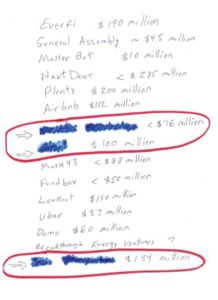 EverFi $190 million
General Assembly ~ $4.5 million
Maker Bot $10 million
Next Door < $285 million
Plenty $200 million
Airbnb $112 million
< $76 million
$100 million
Mark43 < $38 million
Fundbox < $50 million
Lookout $150 million
Uber $37 million
Domo $60 million
Breakthrough Energy Ventures ?
$134 million